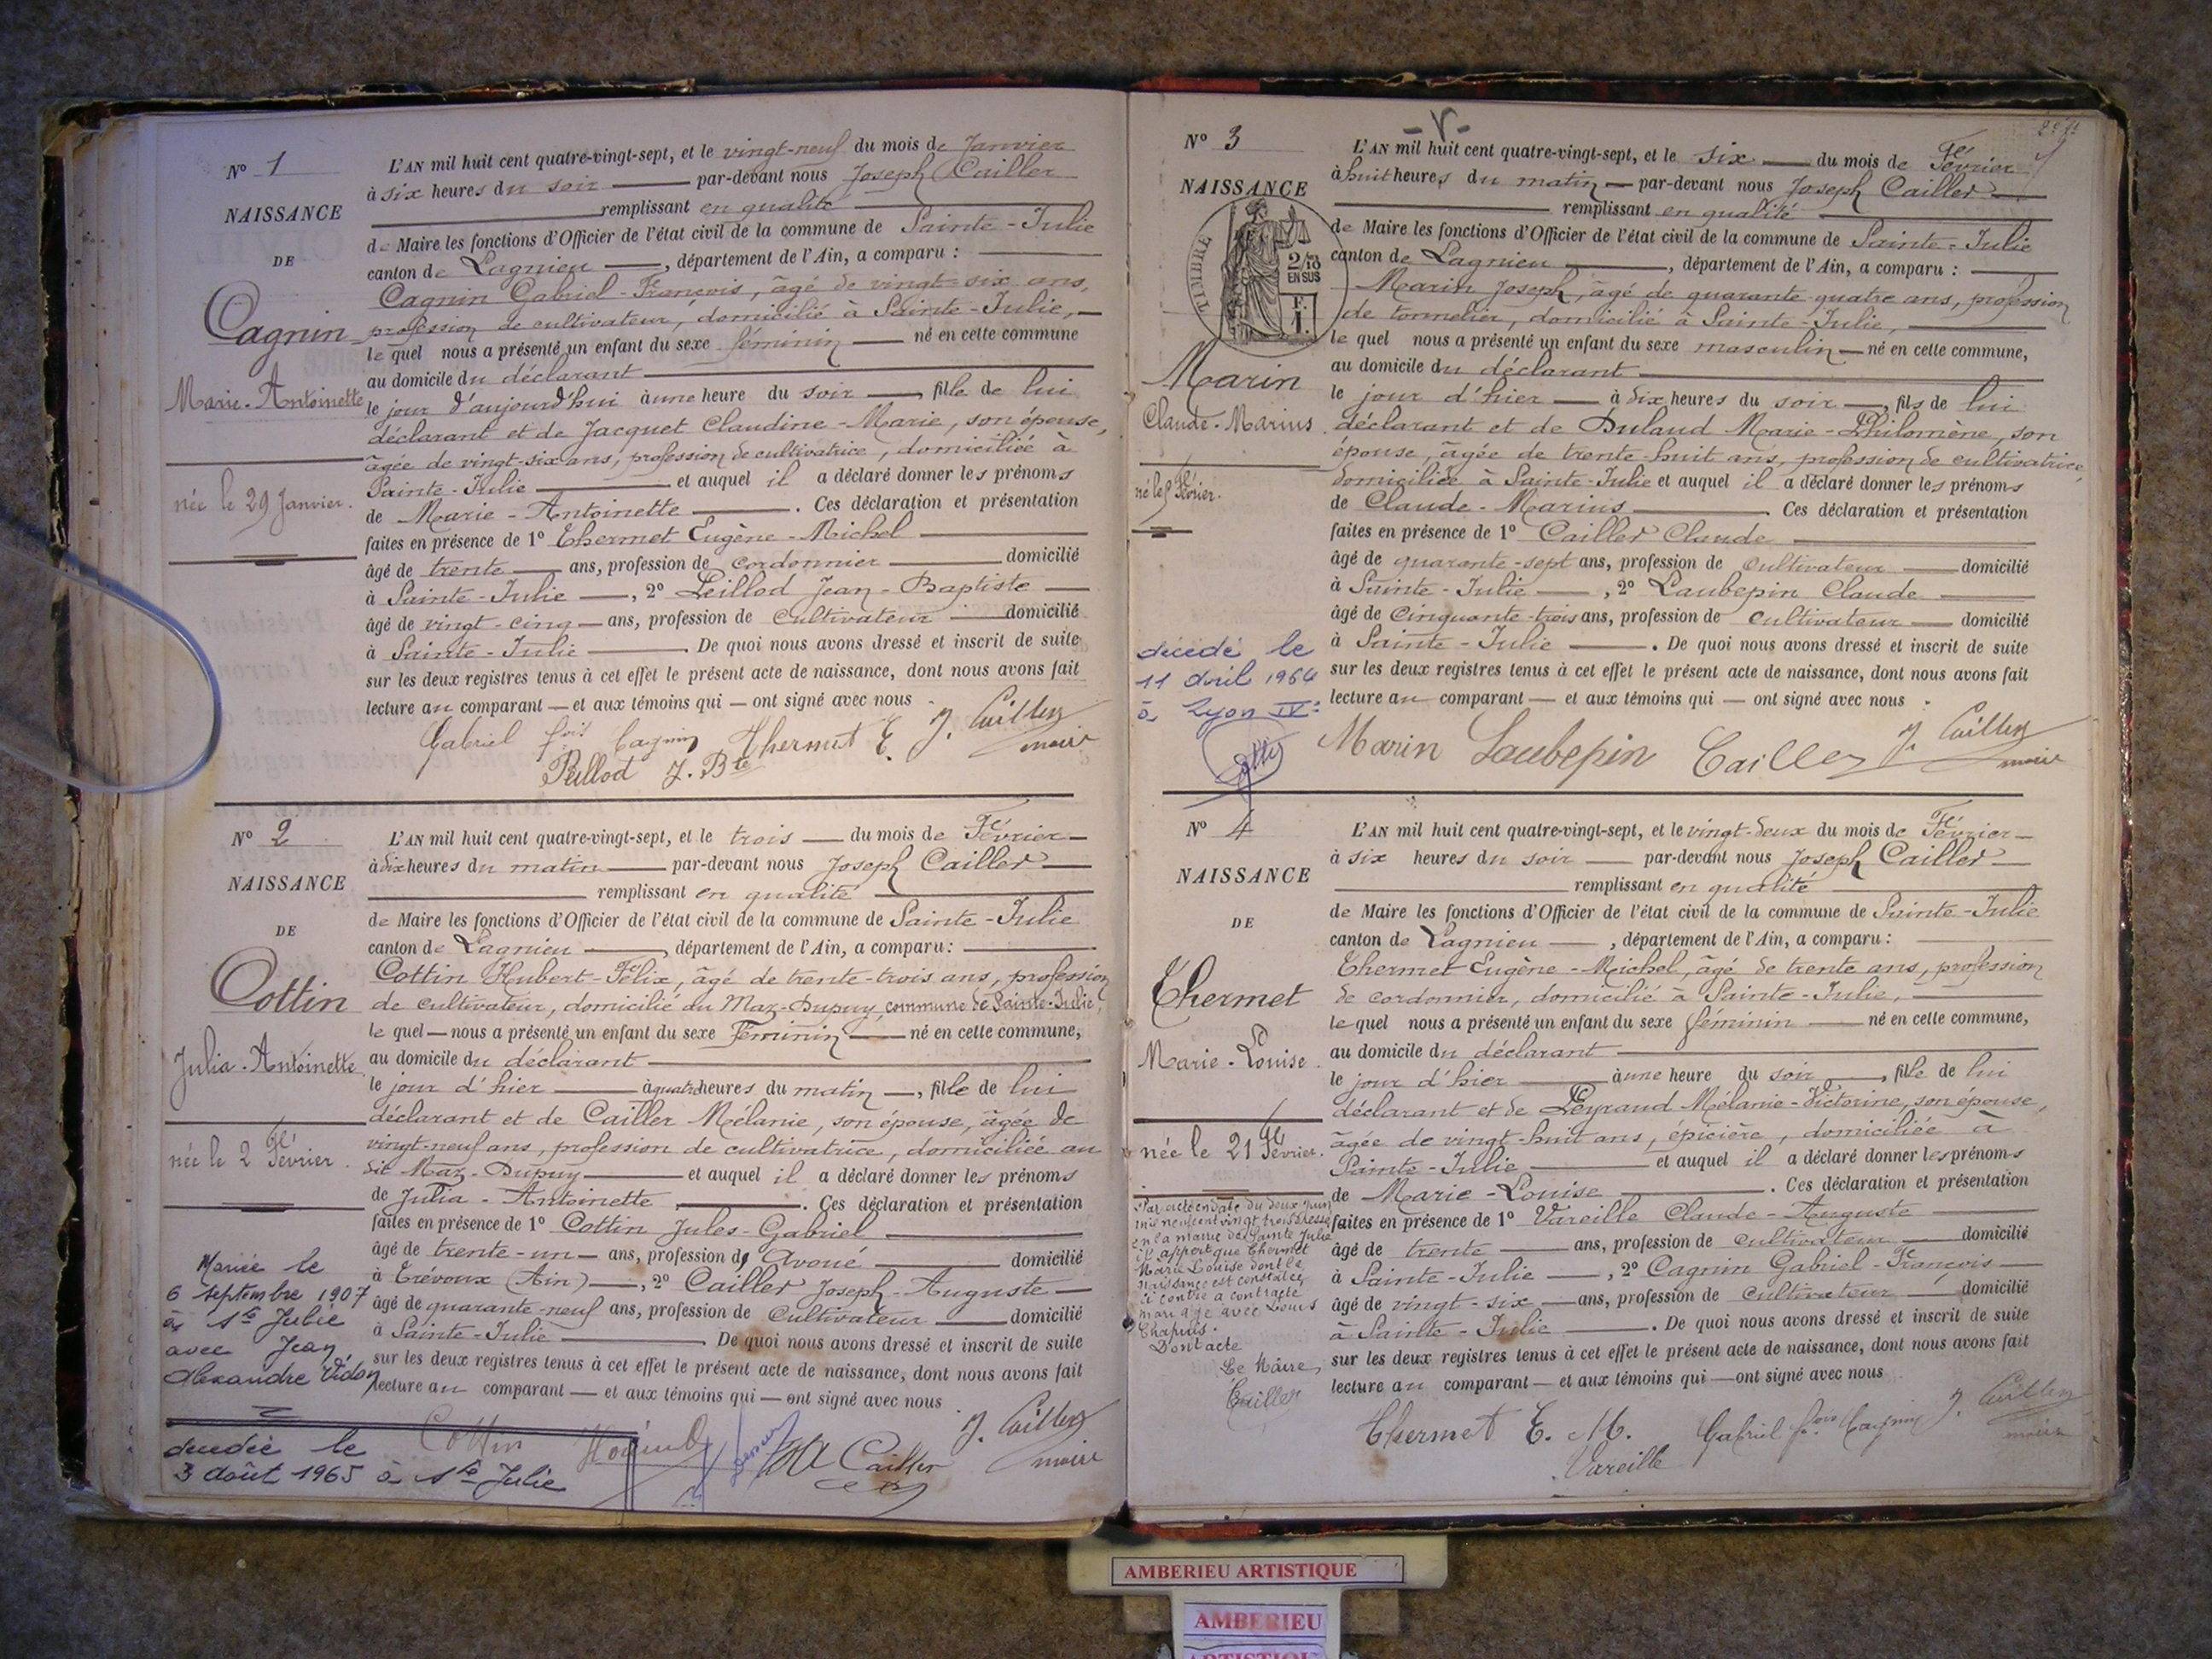 N° 1
NAISSANCE
DE
Cagnin
Marie-Antoinette
née le 29 Janvier.
L'AN mil huit cent quatre-vingt-sept, et le vingt-neuf du mois de Janvier
à six heures du soir par-devant nous Joseph Cailler
remplissant en qualité
de Maire les fonctions d'Officier de l'état civil de la commune de Sainte-Julie
canton de Lagnieu, département de l'Ain, a comparu :
Cagnin Gabriel-François, âgé de vingt-six ans,
profession de cultivateur, domicilié à Sainte-Julie,
le quel nous a présenté un enfant du sexe féminin né en cette commune
au domicile du déclarant
le jour d'aujourd'hui à une heure du soir, fille de lui
déclarant et de Jacquet Claudine-Marie, son épouse,
âgée de vingt-six ans, profession de cultivatrice, domiciliée à
Sainte-Julie et auquel il a déclaré donner les prénoms
de Marie-Antoinette. Ces déclaration et présentation
faites en présence de 1° Thermet Eugène-Michel
âgé de trente ans, profession de cordonnier domicilié
à Sainte-Julie, 2° Peillod Jean-Baptiste
âgé de vingt-cinq ans, profession de cultivateur domicilié
à Sainte-Julie. De quoi nous avons dressé et inscrit de suite
sur les deux registres tenus à cet effet le présent acte de naissance, dont nous avons fait
lecture au comparant et aux témoins qui ont signé avec nous.
Gabriel fois Cagnin Thermet E. J. Cailler
Peillod J. Bte maire
N° 2
NAISSANCE
DE
Cottin
Julia-Antoinette
née le 2 Février.
Mariée le
6 septembre 1907
à Ste Julie
avec Jean
Alexandre Vidon
décédée le
3 août 1965 à Ste Julie
L'AN mil huit cent quatre-vingt-sept, et le trois du mois de Février
à dix heures du matin par-devant nous Joseph Cailler
remplissant en qualité
de Maire les fonctions d'Officier de l'état civil de la commune de Sainte-Julie
canton de Lagnieu, département de l'Ain, a comparu :
Cottin Hubert-Félix, âgé de trente-trois ans, profession
de cultivateur, domicilié du Maz-Dupuy, commune de Sainte-Julie,
le quel nous a présenté un enfant du sexe Féminin né en cette commune,
au domicile du déclarant
le jour d'hier à quatre heures du matin, fille de lui
déclarant et de Cailler Mélanie, son épouse, âgée de
vingt-neuf ans, profession de cultivatrice, domiciliée au
dit Maz-Dupuy et auquel il a déclaré donner les prénoms
de Julia-Antoinette. Ces déclaration et présentation
faites en présence de 1° Cottin Jules-Gabriel
âgé de trente-un ans, profession d'Avoué domicilié
à Trévoux (Ain), 2° Cailler Joseph-Auguste
âgé de quarante-neuf ans, profession de Cultivateur domicilié
à Sainte-Julie. De quoi nous avons dressé et inscrit de suite
sur les deux registres tenus à cet effet le présent acte de naissance, dont nous avons fait
lecture au comparant et aux témoins qui ont signé avec nous
Cottin Cailler J. Cailler
maire
N° 3
NAISSANCE
TIMBRE
2/10
EN SUS
F.
1.
Marin
Claude-Marius
né le 5 Février.
décédé le
11 avril 1964
à Lyon IVe
L'AN mil huit cent quatre-vingt-sept, et le six du mois de Février
à huit heures du matin par-devant nous Joseph Cailler
remplissant en qualité
de Maire les fonctions d'Officier de l'état civil de la commune de Sainte-Julie
canton de Lagnieu, département de l'Ain, a comparu :
Marin Joseph, âgé de quarante quatre ans, profession
de tonnelier, domicilié à Sainte-Julie,
le quel nous a présenté un enfant du sexe masculin né en cette commune,
au domicile du déclarant
le jour d'hier à dix heures du soir, fils de lui
déclarant et de Dulaud Marie-Philomène, son
épouse, âgée de trente-huit ans, profession de cultivatrice,
domiciliée à Sainte-Julie et auquel il a déclaré donner les prénoms
de Claude-Marius. Ces déclaration et présentation
faites en présence de 1° Cailler Claude
âgé de quarante-sept ans, profession de cultivateur domicilié
à Sainte-Julie, 2° Laubepin Claude
âgé de Cinquante-trois ans, profession de cultivateur domicilié
à Sainte-Julie. De quoi nous avons dressé et inscrit de suite
sur les deux registres tenus à cet effet le présent acte de naissance, dont nous avons fait
lecture au comparant et aux témoins qui ont signé avec nous.
Marin Laubepin Cailler J. Cailler
maire
N° 4
NAISSANCE
DE
Thermet
Marie-Louise.
née le 21 Février.
Par acte en date du deux Juin
mil neuf cent vingt trois dressé
en la mairie de Sainte Julie
il appert que Thermet
Marie Louise dont la
naissance est constatée
ci contre a contracté
mariage avec Louis
Chapuis.
Dont acte
Le Maire,
Cailler
L'AN mil huit cent quatre-vingt-sept, et le vingt-deux du mois de Février
à six heures du soir par-devant nous Joseph Cailler
remplissant en qualité
de Maire les fonctions d'Officier de l'état civil de la commune de Sainte-Julie
canton de Lagnieu, département de l'Ain, a comparu :
Thermet Eugène-Michel, âgé de trente ans, profession
de cordonnier, domicilié à Sainte-Julie,
le quel nous a présenté un enfant du sexe féminin né en cette commune,
au domicile du déclarant
le jour d'hier à une heure du soir, fille de lui
déclarant et de Peyraud Mélanie-Victorine, son épouse,
âgée de vingt-huit ans, épicière, domiciliée à
Sainte-Julie et auquel il a déclaré donner les prénoms
de Marie-Louise. Ces déclaration et présentation
faites en présence de 1° Vareille Claude-Auguste
âgé de trente ans, profession de cultivateur domicilié
à Sainte-Julie, 2° Cagnin Gabriel-François
âgé de vingt-six ans, profession de cultivateur domicilié
à Sainte-Julie. De quoi nous avons dressé et inscrit de suite
sur les deux registres tenus à cet effet le présent acte de naissance, dont nous avons fait
lecture au comparant et aux témoins qui ont signé avec nous
Thermet E. M. Gabriel fois Cagnin J. Cailler
Vareille maire
AMBERIEU ARTISTIQUE
AMBERIEU
ARTISTIQUE